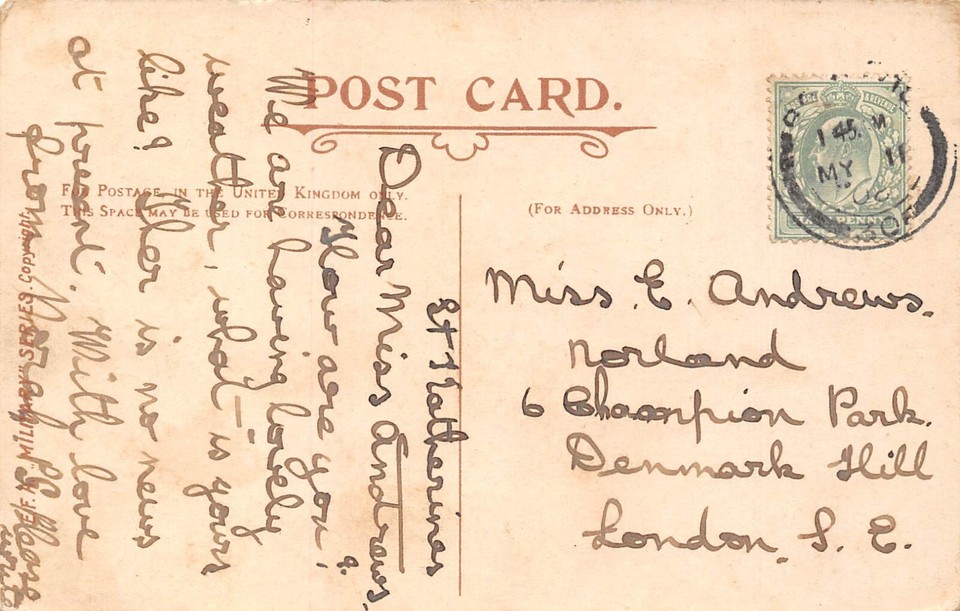 POST CARD.
FOR POSTAGE IN THE UNITED KINGDOM ONLY.
THIS SPACE MAY BE USED FOR CORRESPONDENCE.
(FOR ADDRESS ONLY.)
"MILITARY" SERIES. Copyright.
1 45 M
MY 11
HALFPENNY
St Katherines
Dear Miss Andrews,
How are you?
We are having lovely
weather, what is yours
like? Ther is no news
at present. With love
from
Please
write
Miss. E. Andrews.
Norland
6 Champion Park.
Denmark Hill
London. S. E.